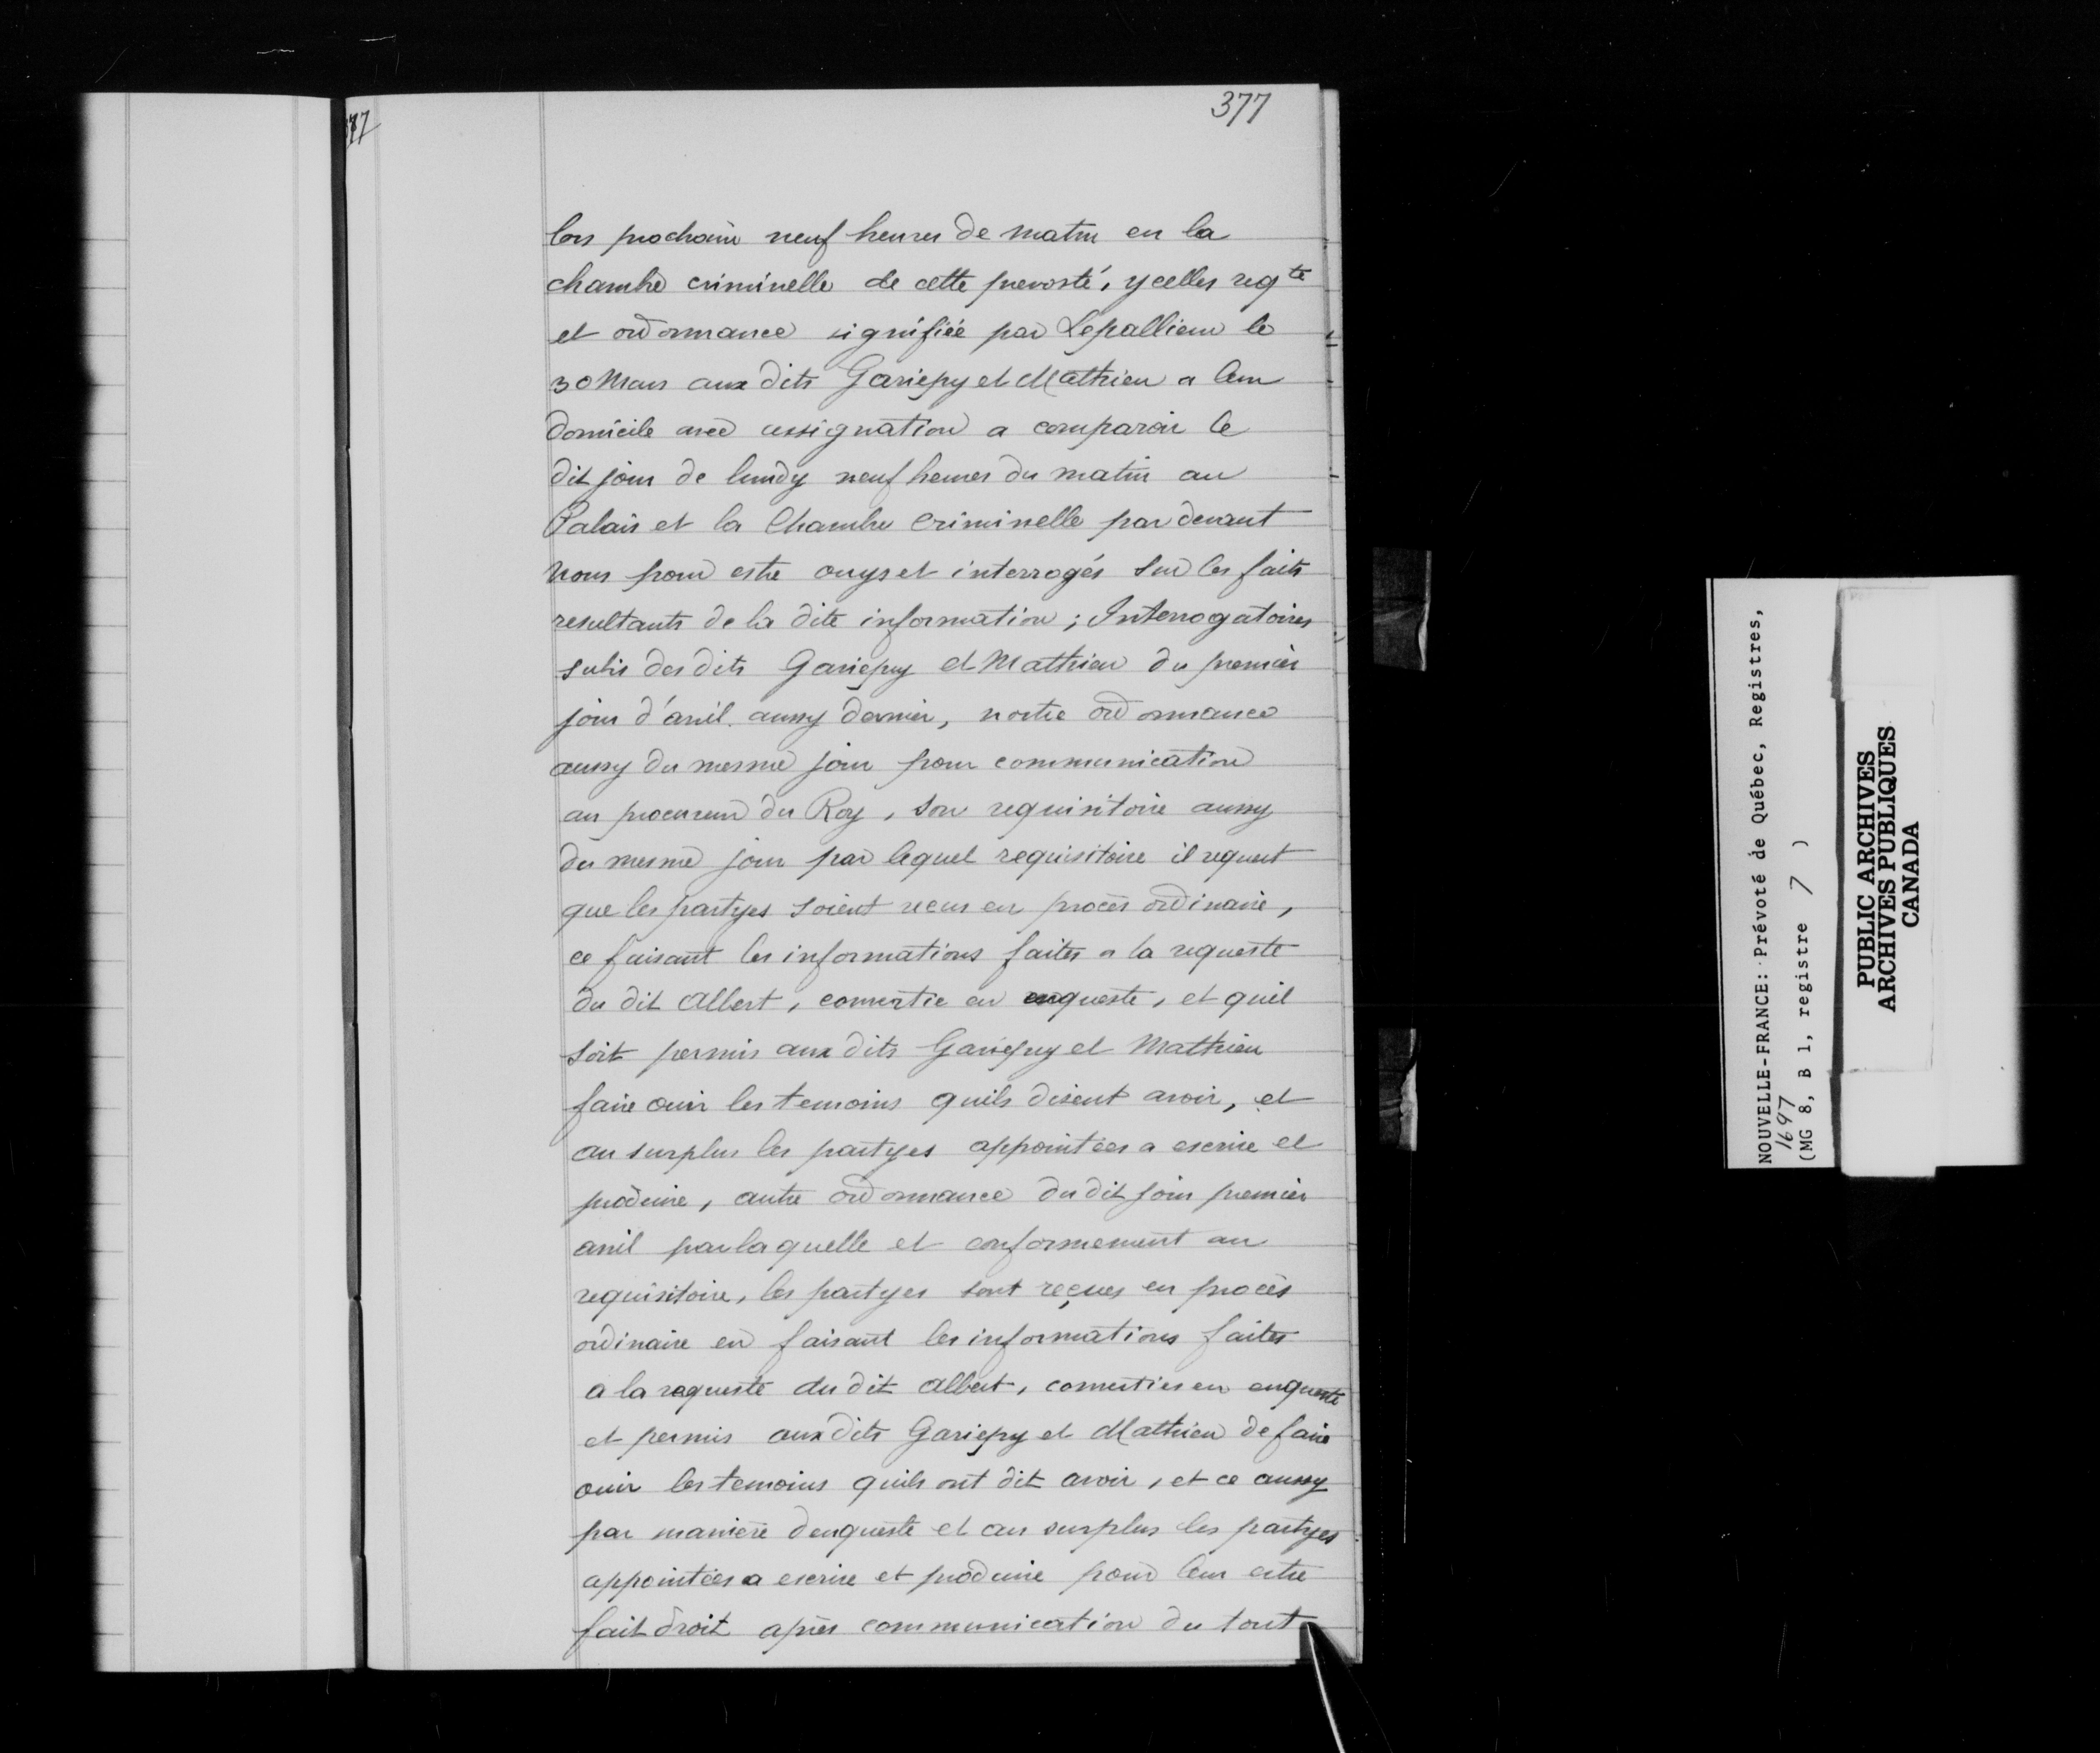 377
lors prochain neuf heures de matin en la
chambre criminelle de cette prevosté, ycelles reqte
et ordonnance signifiée par Lepallieur le
30 Mars aux dits Gariepy et Mathieu a leur
domicile avec assignation a comparoir le
dit jour de lundy neuf heures du matin au
Palais et la Chambre Criminelle par devant
nous pour estre ouys et interrogés sur les faits
resultants de la dite information ; Interrogatoires
subis des dits Gariepy et Mathieu du premier
jour d'avril aussy dernier, nostre ordonnance
aussy du mesme jour pour communication
au procureur du Roy, son requisitoire aussy
du mesme jour par lequel requisitoire il requert
que les partyes soient receus en procès ordinaire,
ce faisant les informations faites a la requeste
du dit Albert, convertie en enqueste, et quil
soit permis aux dits Gariepuy et Mathieu
faire ouir les temoins quils disent avoir, et
au surplus les partyes appointées a escrire et
produire, autre ordonnance du dit jour premier
avril par laquelle et conformement au
requisitoire, les partyes sont reçues en procès
ordinaire en faisant les informations faites
a la requeste du dit Albert, converties en enqueste
et permis aux dits Gariepy et Mathieu de faire
ouir les temoins quils ont dit avoir, et ce aussy
par maniere denqueste et au surplus les partyes
appointées a escrire et produire pour leur estre
fait droit après communication du tout
NOUVELLE-FRANCE: Prévoté de Québec, Registres,
1697
(MG 8, B 1, registre 7 )
PUBLIC ARCHIVES
ARCHIVES PUBLIQUES
CANADA